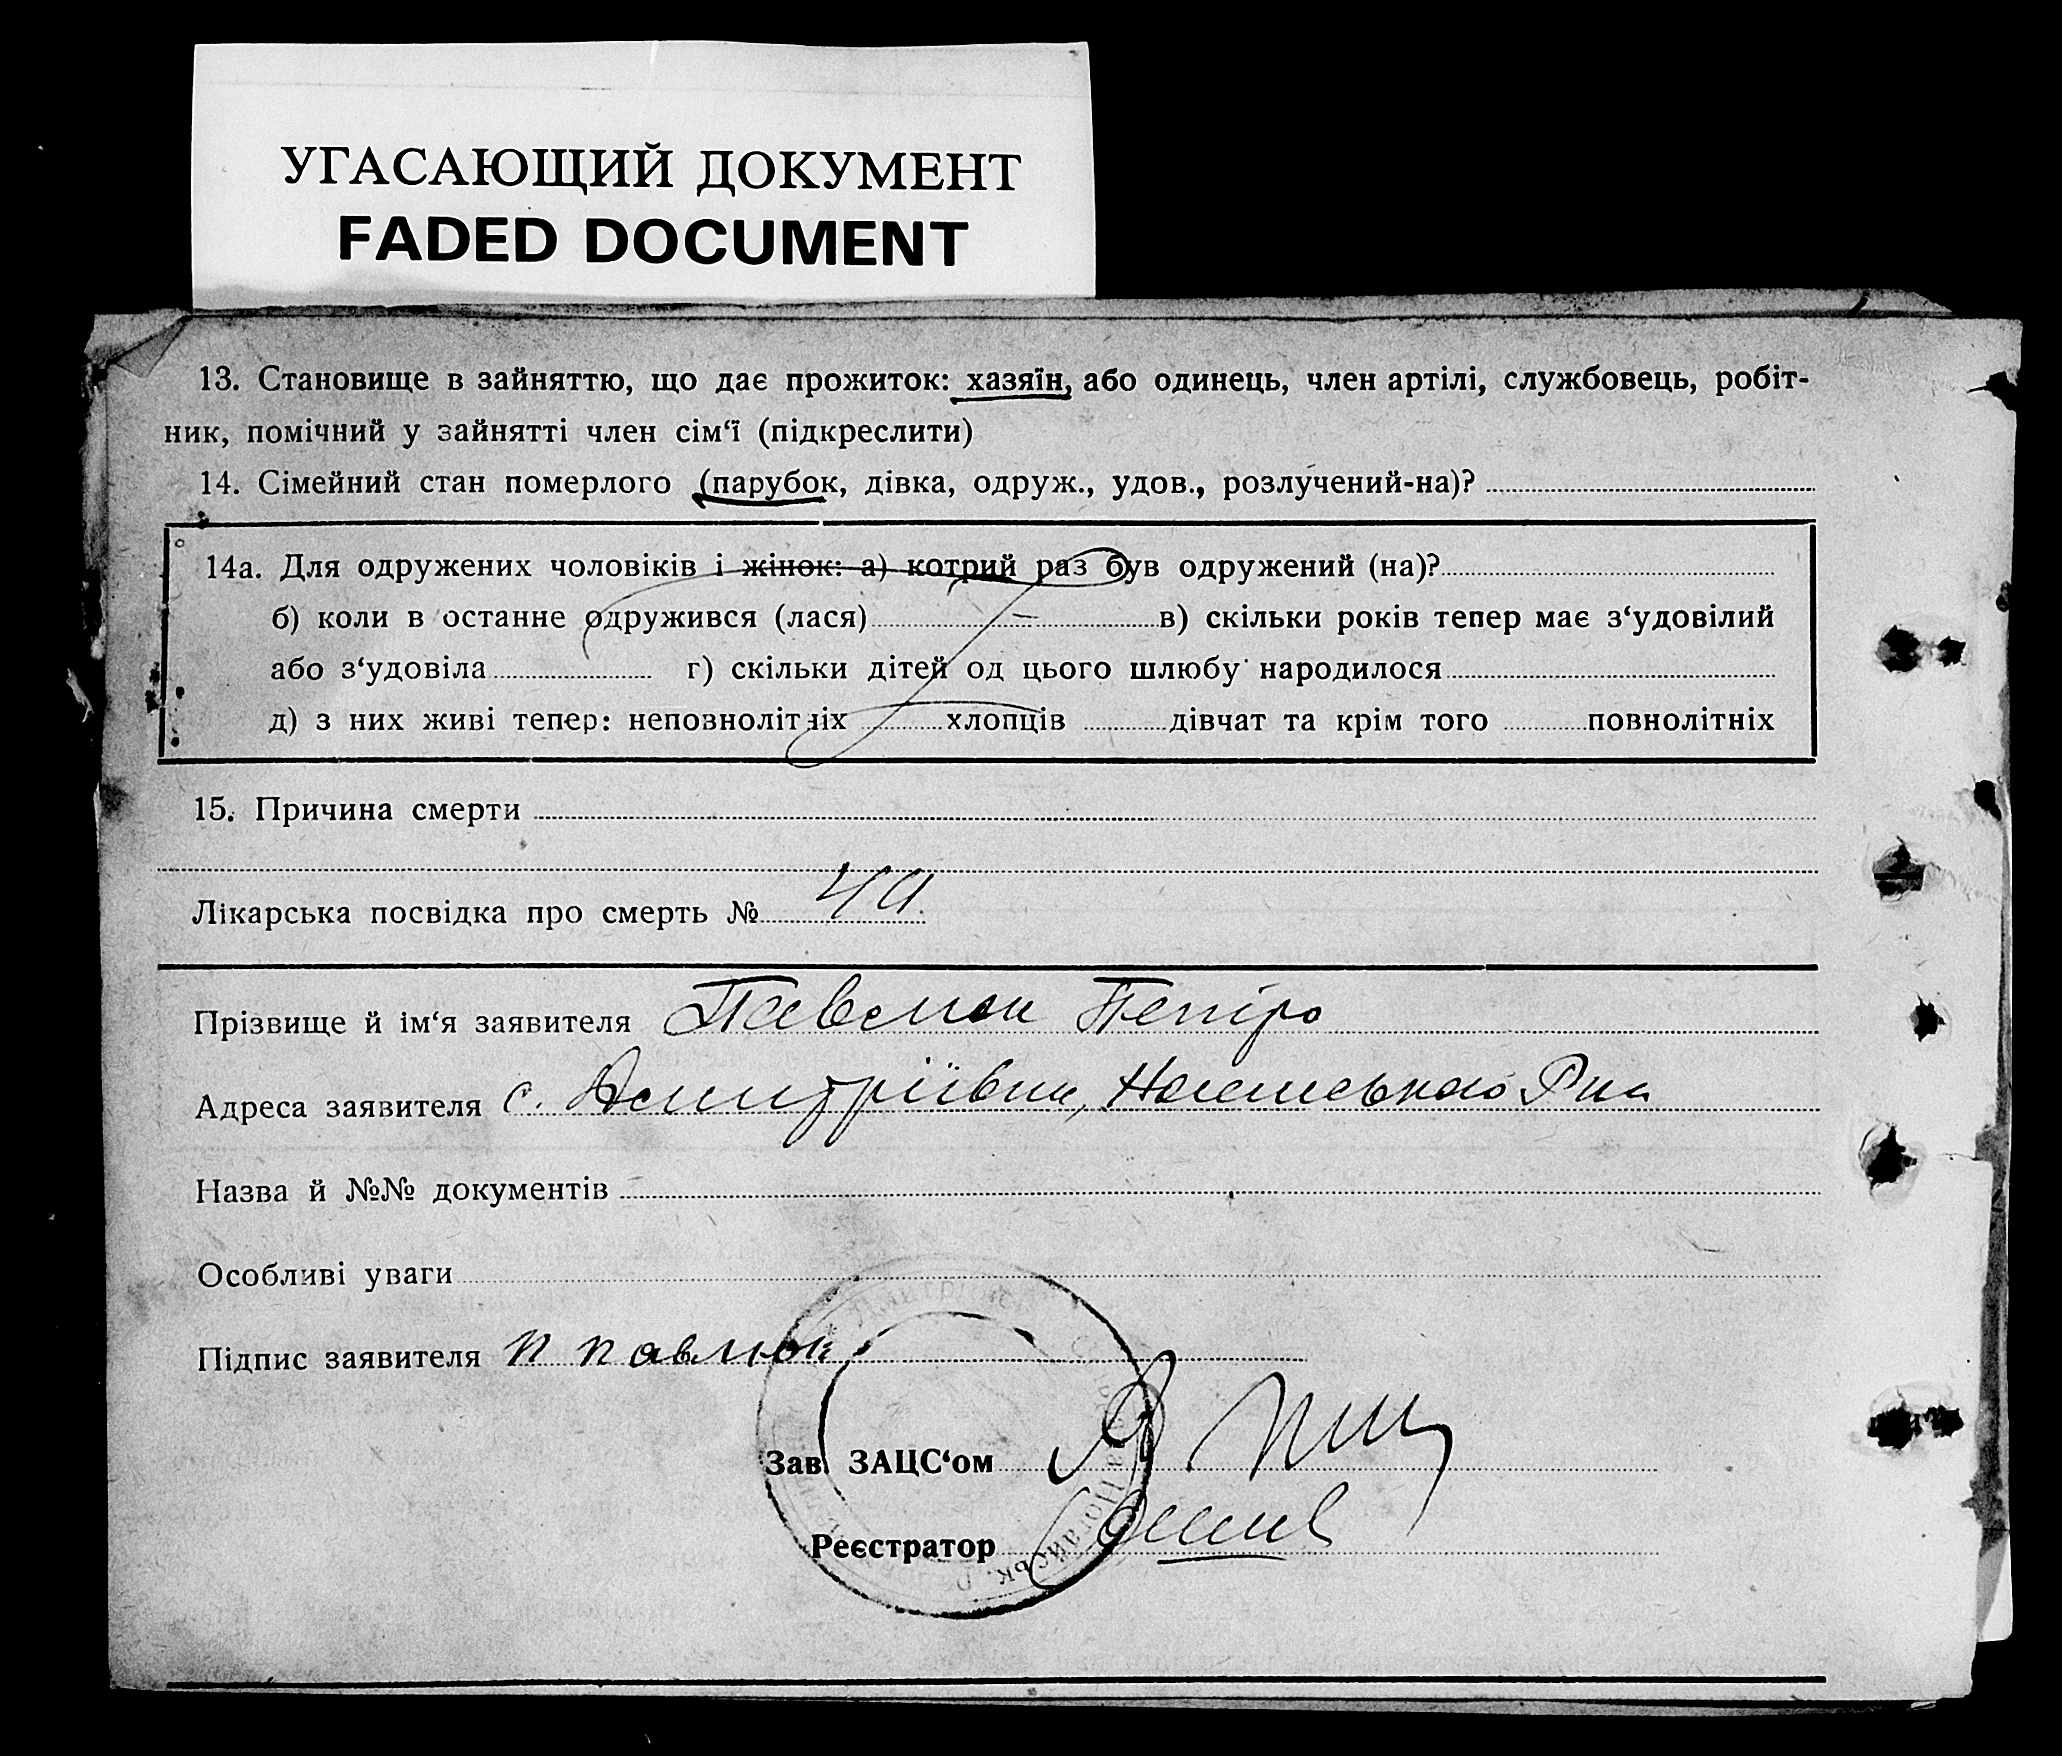 УГАСАЮЩИЙ ДОКУМЕНТ
FADED DOCUMENT
13. Становище в зайняттю, що дає прожиток: хазяїн, або одинець, член артілі, службовець, робіт-
ник, помічний у зайнятті член сім‘ї (підкреслити)
14. Сімейний стан померлого (парубок, дівка, одруж., удов., розлучений-на)?
14а. Для одружених чоловіків і жінок: а) котрий раз був одружений (на)?
б) коли в останне одружився (лася) — в) скільки років тепер має з‘удовілий
або з‘удовіла г) скільки дітей од цього шлюбу народилося
д) з них живі тепер: неповнолітніх хлопців дівчат та крім того повнолітніх
15. Причина смерти
Лікарська посвідка про смерть №
Прізвище й ім‘я заявителя Павлюк Петро
Адреса заявителя с. Дмитрівки,
Назва й №№ документів
Особливі уваги
Підпис заявителя П Павлюк
Зав. ЗАЦС‘ом
Реєстратор